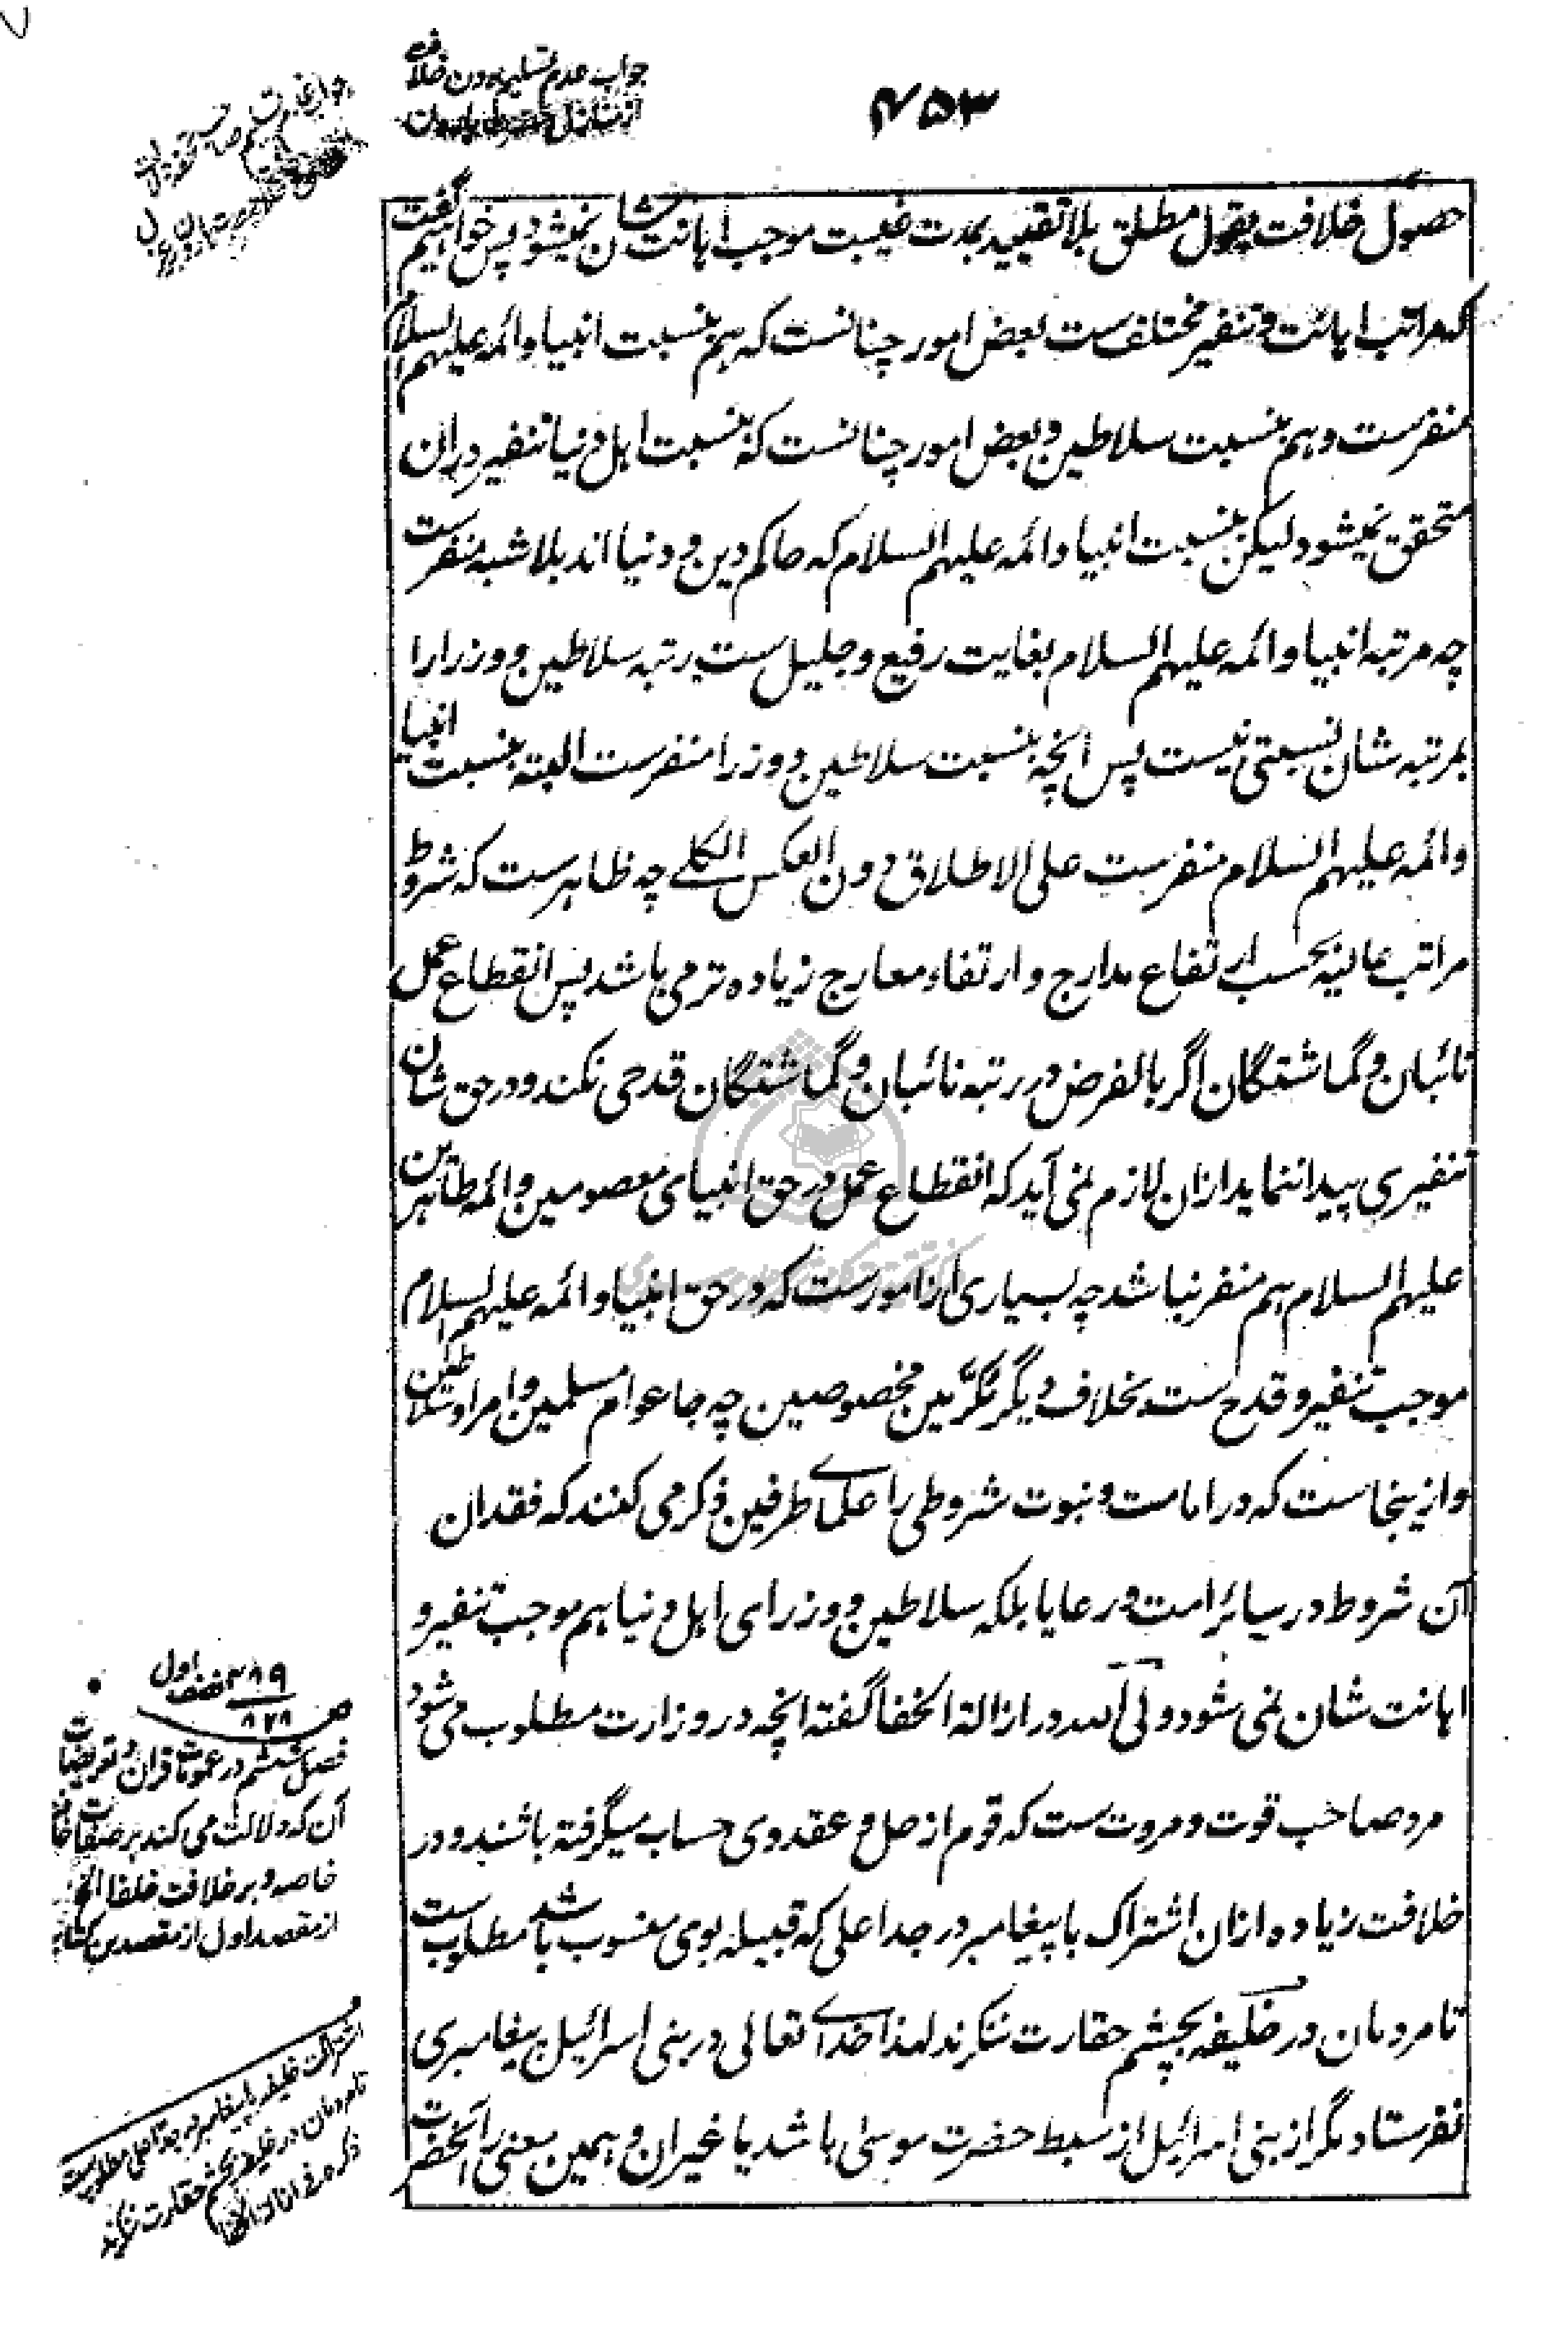 ۷۵۳
جواب عدم تسلیم بودن خلافت
حصول خلافت بقول مطلق بلا تقیید بمدت غیبت موجب اہانت شان نمیشود پس خواہیم گفت
کہ مراتب اہانت و تنفیر مختلف ست بعض امور چنانست کہ ہم بنسبت انبیا و ائمہ علیہم السلام
منفرست و ہم بنسبت سلاطین و بعض امور چنانست کہ بنسبت اہل دنیا تنفیر دران
متحقق نمیشود لیکن بنسبت انبیا و ائمہ علیہم السلام کہ حاکم دین و دنیا اند بلا شبہ منفرست
چہ مرتبہ انبیا و ائمہ علیہم السلام بغایت رفیع و جلیل ست رتبہ سلاطین و وزرا را
بمرتبہ شان نسبتی نیست پس انچہ بنسبت سلاطین و وزرا منفرست البتہ بنسبت انبیا
وائمہ علیہم السلام منفرست علی الاطلاق دون العکس الکلے چہ ظاہرست کہ شروط
مراتب عالیہ بحسب ارتفاع مدارج و ارتقاء معارج زیادہ تر می باشد پس انقطاع عمل
نائبان و گماشتگان اگر بالفرض در رتبہ نائبان و گماشتگان قدحی نکند و در حق شان
تنفیری پیدا ننماید ازان لازم نمی آید کہ انقطاع عمل در حق انبیای معصومین و ائمہ طاہرین
علیہم السلام ہم منفر نباشد چہ بسیاری از امورست کہ در حق انبیا و ائمہ علیہم السلام
موجب تنفیر و قدح ست بخلاف دیگر مکرّمین مخصوصین چہ جا عوام مسلمین و امرا و سلاطین
و ازینجاست کہ در امامت و نبوت شروطی را علمای طرفین ذکر می کنند کہ فقدان
آن شروط در سائر امت و رعایا بلکہ سلاطین و وزرای اہل دنیا ہم موجب تنفیر و
اہانت شان نمی شود و ولی اللہ در ازالة الخفا گفتہ انچہ در وزارت مطلوب می شود
مرد صاحب قوت و مروت ست کہ قوم از حل و عقد وی حساب میگرفتہ باشند و در
خلافت زیادہ ازان اشتراک با پیغامبر در جد اعلی کہ قبیلہ بوی منسوب باشد مطلوب ست
تا مردمان در خلیفہ بچشم حقارت ننگرند لہذا خدای تعالی در بنی اسرائیل پیغامبری
نفرستاد مگر از بنی اسرائیل از سبط حضرت موسیٰ باشد یا غیر ان و ہمین معنی را آنحضرت
۲۸۹ نصف اول
ص ۸۲۸
فصل ششم در عمومات قران و تعریضات
آن کہ دلالت می کند بر صفات
خاصہ و بر خلافت خلفا الخ
از مقصد اول از مقصدین کتاب
اشتراک خلیفہ با پیغامبر در جد اعلی مطلوب ست
تا مردمان در خلیفہ بچشم حقارت ننگرند
ذکرہ فی ازالة الخفا